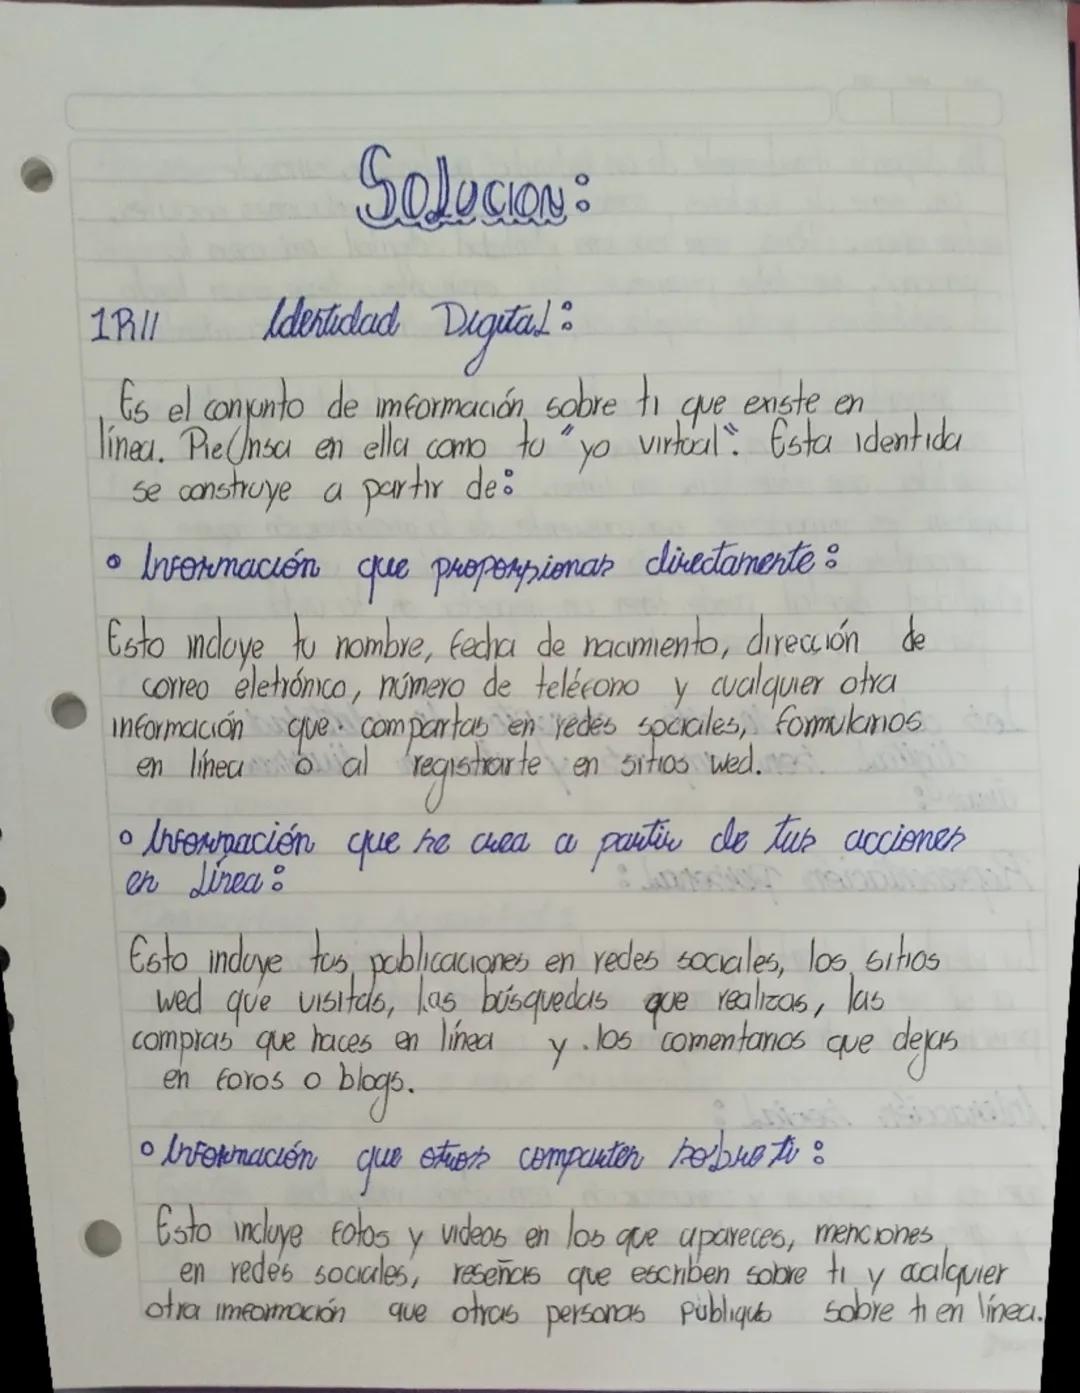 Solucion:
1R// Identidad Digital:
Es el conjunto de imformación sobre ti que existe en
línea. Piensa en ella como tu "yo virtual". Esta identida
se construye a partir de:
• Información que proporsionas directamente:
Esto incluye tu nombre, fecha de nacimiento, dirección de
correo eletrónico, número de teléfono y cualquier otra
información que compartas en redes sociales, formularios
en línea o al registrarte en sitios wed.
• Información que se crea a partir de tus acciones
en Línea:
Esto incluye tus publicaciones en redes sociales, los sitios
wed que visitas, las búsquedas que realizas, las
compras que haces en línea y los comentarios que dejas
en foros o blogs.
• Información que otros comparten sobre ti:
Esto incluye fotos y videos en los que apareces, menciones
en redes sociales, reseñas que escriben sobre ti y cualquier
otra imformación que otras personas publiqus sobre ti en línea.